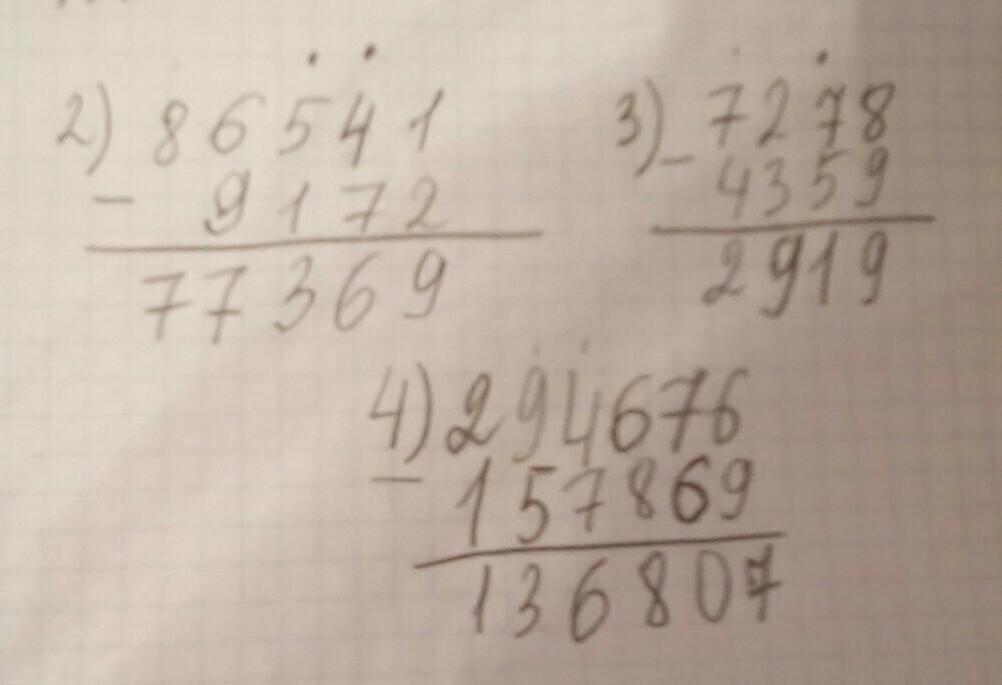 2) 86541
- 9172
77369
3) - 7278
4359
2919
4) 294676
- 157869
136807